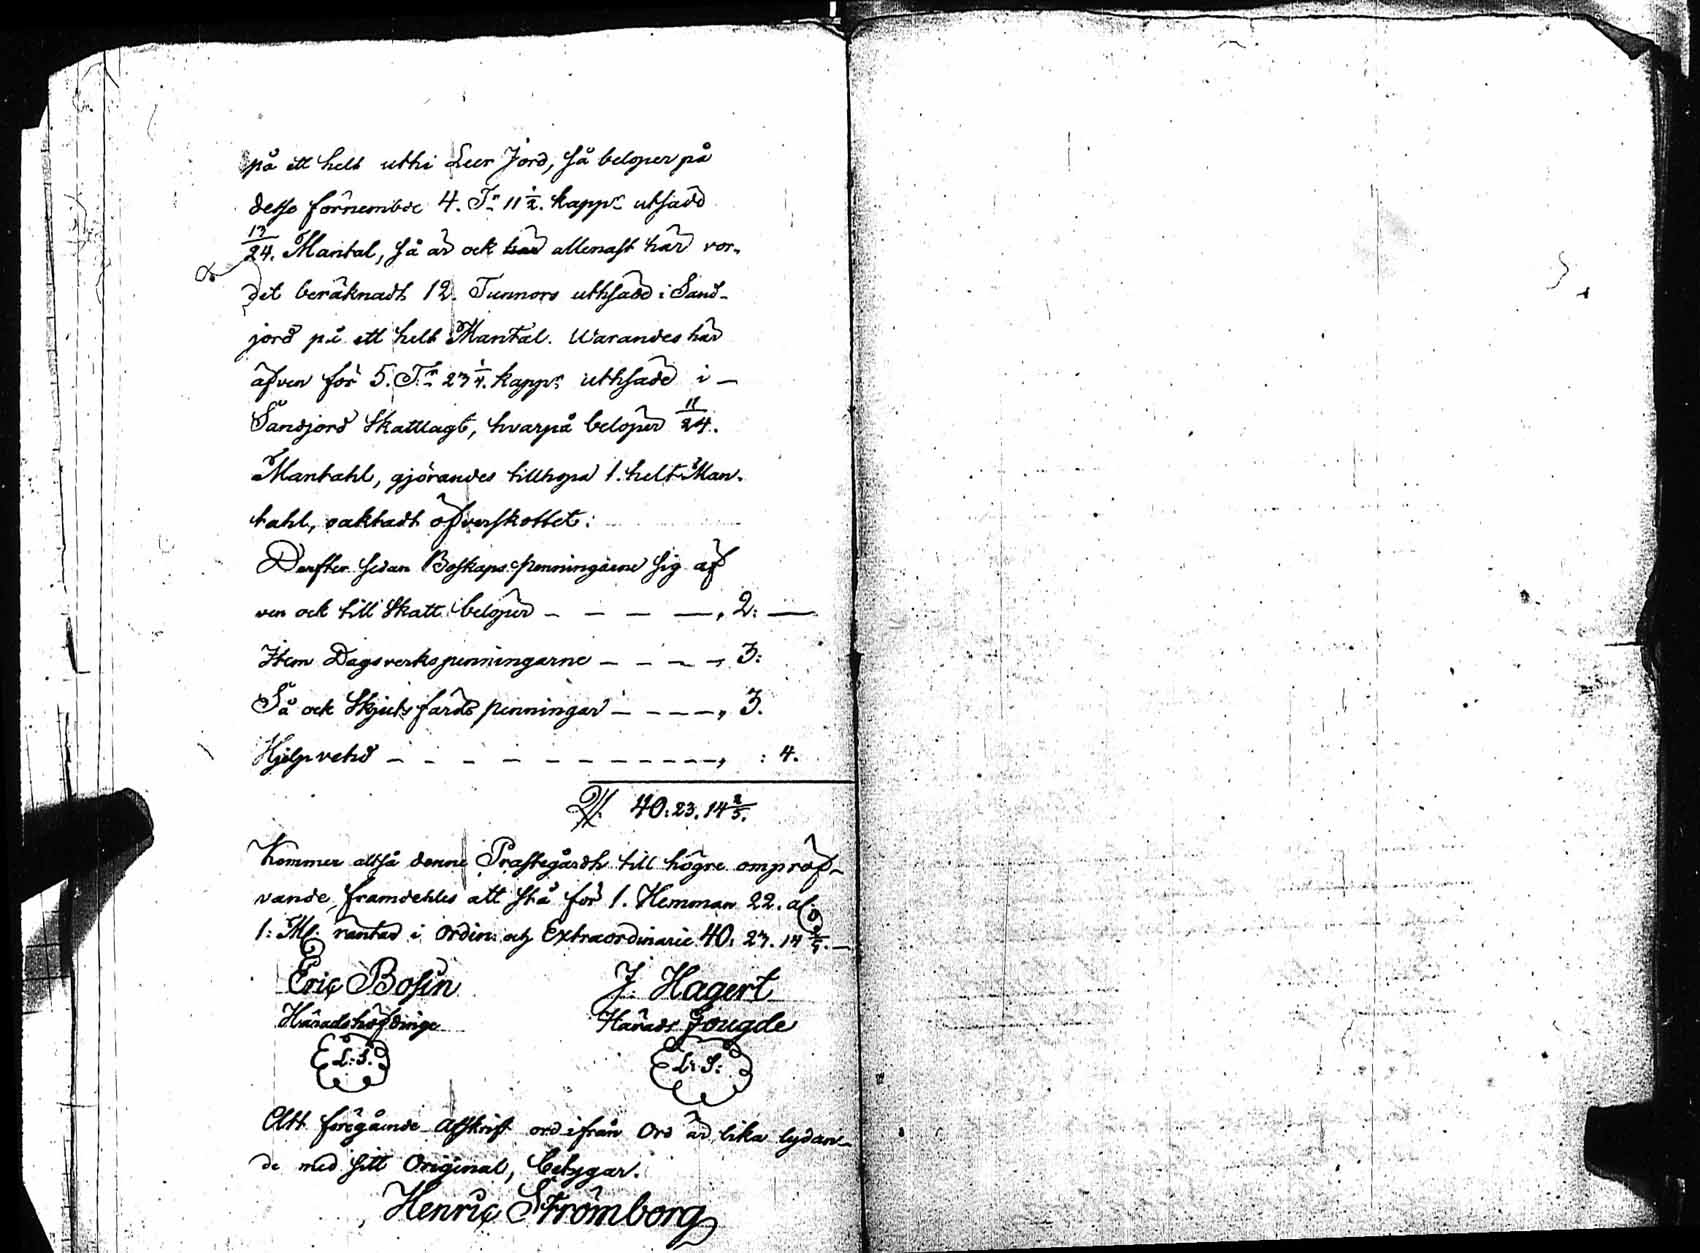 på ett helt uthi Leer Jord, så beloper på
desse förnembde 4. T:r 11 1/2. kapp:r utsäd
13/24. Mantal, så är ock allenast här vor-
det beräknadt 12. Tunnors uthsäde i Sand-
jord på ett helt Mantal. Warandes här
äfven för 5. T:r 23 1/4. kapp:r uthsäde i —
Sandjord Skattlagt, hvarpå beloper 11/24.
Mantahl, gjörandes tillhopa 1. helt Man-
tahl, oaktadt öfverskottet:
Derefter sedan Boskaps penningarne sig äf
ven ock till Skatt beloper — — — — „ 2: —
Item Dagsverks penningarne — — — — „ 3:
Så ock Skjuts färds penningar — — — — „ 3.
Hjelp vehd — — — — — — — — — — „ : 4.
40: 23. 14 2/5.
Kommer altså denne Prästegårdh till högre ompröf-
vande, framdehles att stå för 1. Hemman 22. al:
1: Ml: räntad i Ordin: och Extraordinarie 40: 23. 14 2/5. —
Eric Bosin J. Hagert
Häradshöfdinge Härads Fougde
L: S: L: S:
Att föregående Afskrift ord ifrån Ord är lika lydan-
de med sitt Original, betygar.
Henric Strömborg